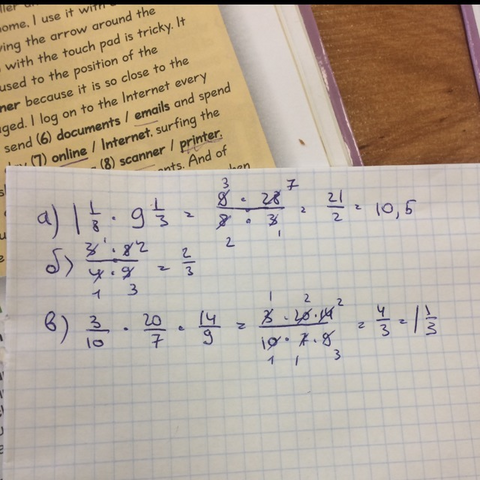 ome, I use it with
ving the arrow around the
with the touch pad is tricky. It
used to the position of the
ner because it is so close to the
ged. I log on to the Internet every
send (6) documents / emails and spend
(7) online / Internet, surfing the
(8) scanner / printer,
ents. And of
а) 1 1/8 · 9 1/3 = 9 · 28 / 8 · 3 = 21/2 = 10,5
б) 3 · 8 / 4 · 9 = 2/3
в) 3/10 · 20/7 · 14/9 = 3 · 20 · 14 / 10 · 7 · 9 = 4/3 = 1 1/3